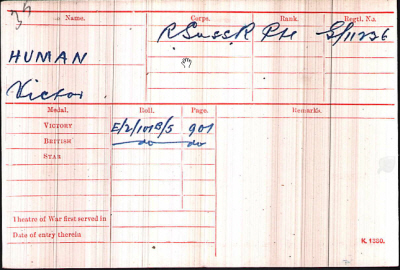 Name. Corps. Rank. Regtl. No.
R Suss R Pte G/11236
HUMAN
Victor
Medal. Roll. Page. Remarks.
VICTORY E/2/101B/5 901
BRITISH do do
STAR
Theatre of War first served in
Date of entry therein
K. 1380.